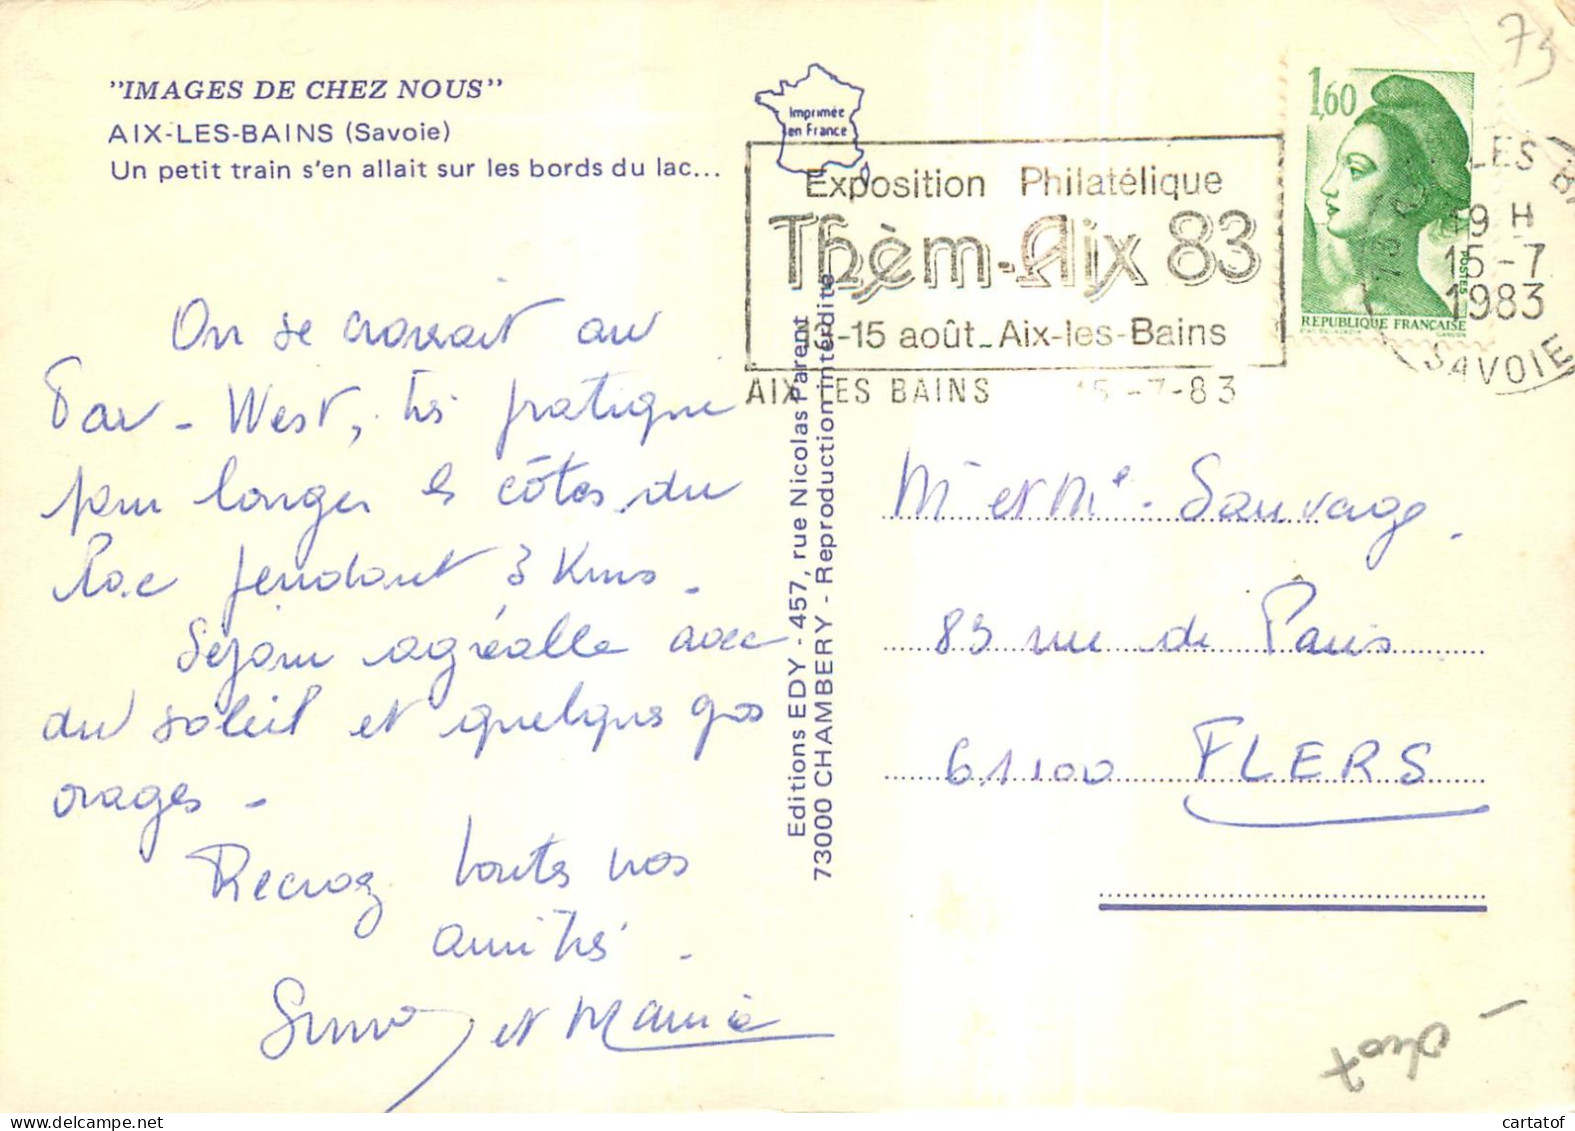 "IMAGES DE CHEZ NOUS"
AIX-LES-BAINS (Savoie)
Un petit train s'en allait sur les bords du lac...
Imprimée
en France
Exposition Philatélique
Thèm-Aix 83
-15 août_Aix-les-Bains
AIX LES BAINS 15-7-83
1,60
POSTES
REPUBLIQUE FRANÇAISE
LES BA
19 H
15-7
1983
SAVOIE
73
On se croirait au
Far-West, très pratique
pour longer les côtes du
lac pendant 3 Kms.
Séjour agréable avec
du soleil et quelques gros
orages -
Recevez toutes nos
amitiés.
et Mamie
Editions EDY - 457, rue Nicolas Parent
73000 CHAMBERY - Reproduction interdite
Mr et Mme Sauvage.
83 rue de Paris
61100 FLERS
cartatof